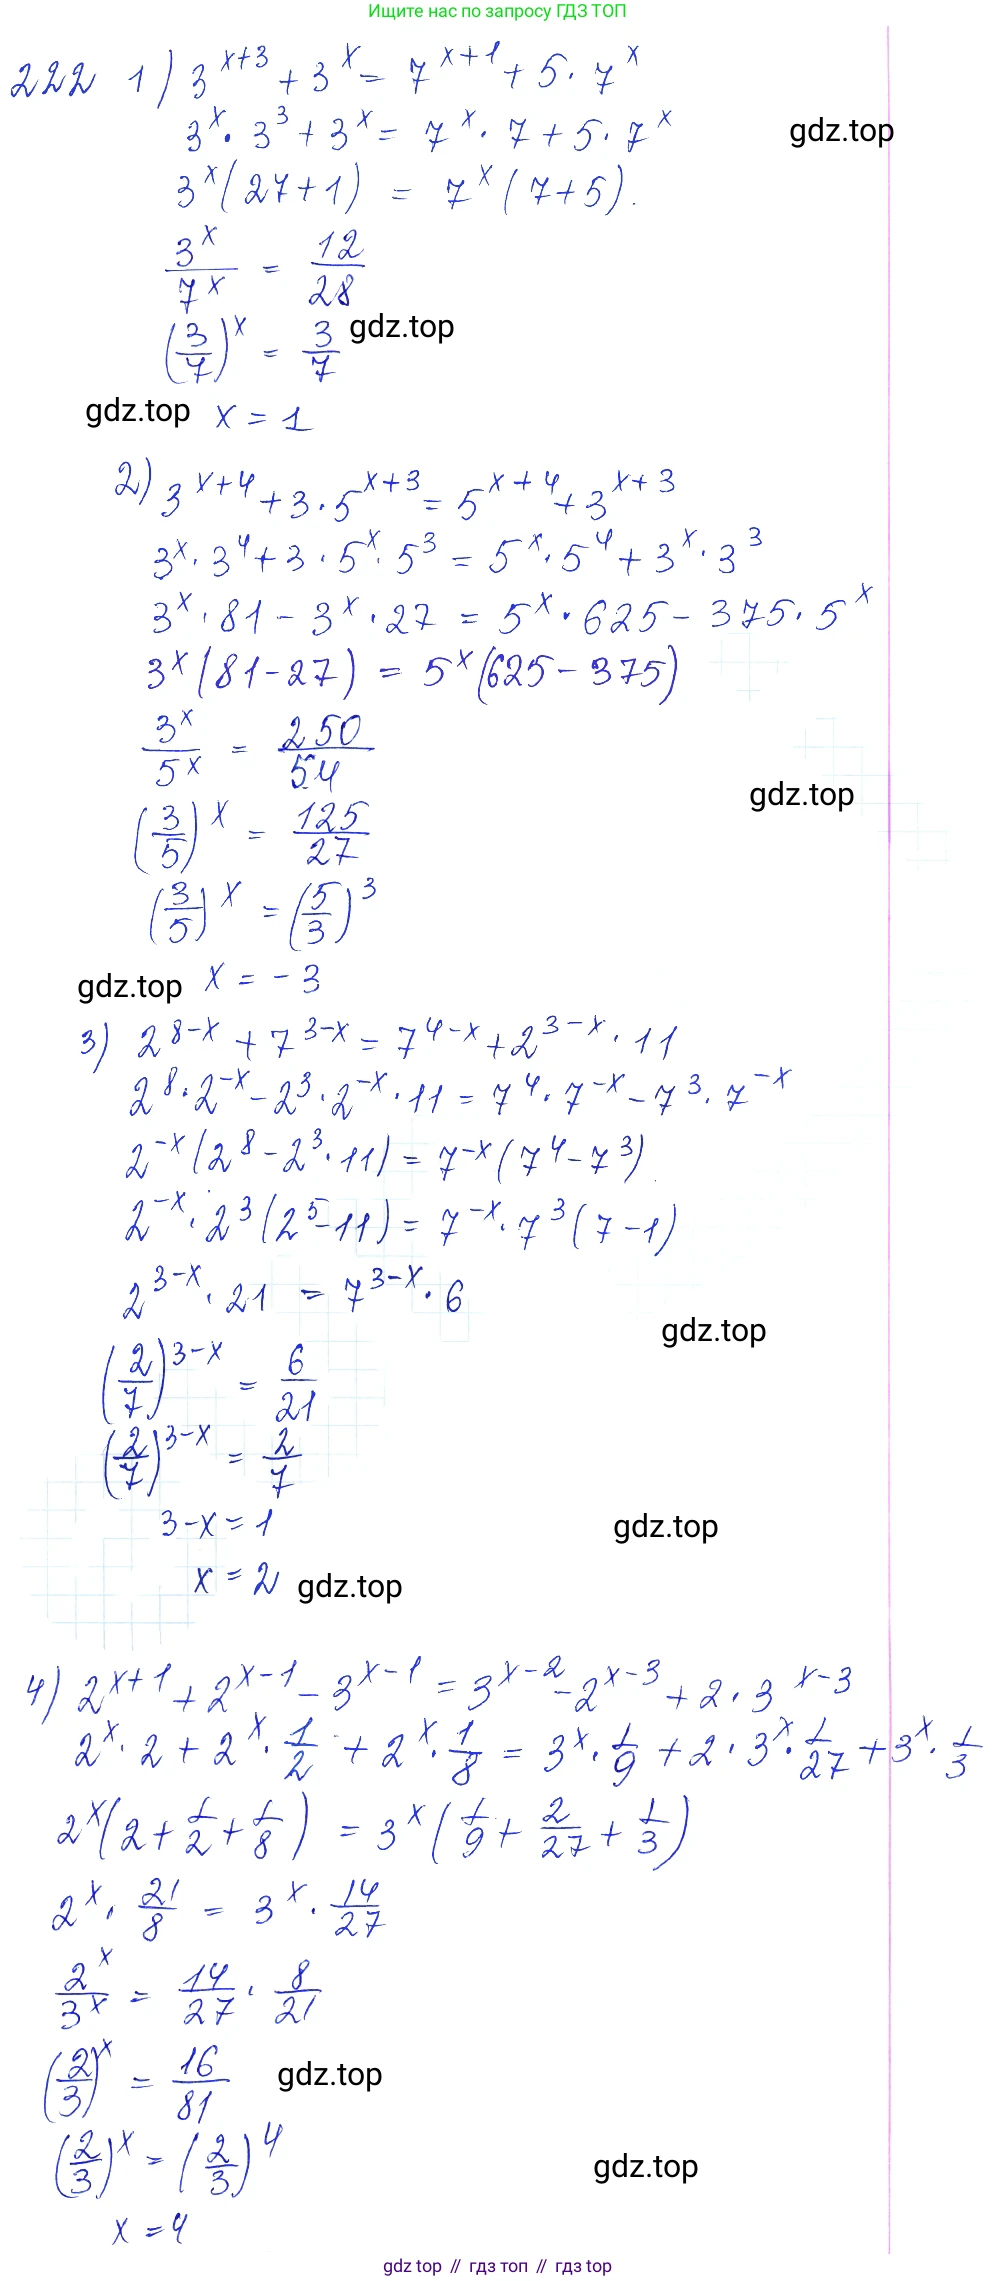 Ищите нас по запросу ГДЗ ТОП
222 1) 3^(x+3) + 3^x = 7^(x+1) + 5 · 7^x
3^x · 3^3 + 3^x = 7^x · 7 + 5 · 7^x
gdz.top
3^x (27 + 1) = 7^x (7 + 5).
3^x/7^x = 12/28
(3/7)^x = 3/7
gdz.top
gdz.top
x = 1
2) 3^(x+4) + 3 · 5^(x+3) = 5^(x+4) + 3^(x+3)
3^x · 3^4 + 3 · 5^x · 5^3 = 5^x · 5^4 + 3^x · 3^3
3^x · 81 - 3^x · 27 = 5^x · 625 - 375 · 5^x
3^x (81 - 27) = 5^x (625 - 375)
3^x/5^x = 250/54
gdz.top
(3/5)^x = 125/27
(3/5)^x = (5/3)^3
gdz.top
x = -3
3) 2^(8-x) + 7^(3-x) = 7^(4-x) + 2^(3-x) · 11
2^8 · 2^(-x) - 2^3 · 2^(-x) · 11 = 7^4 · 7^(-x) - 7^3 · 7^(-x)
2^(-x) (2^8 - 2^3 · 11) = 7^(-x) (7^4 - 7^3)
2^(-x) · 2^3 (2^5 - 11) = 7^(-x) · 7^3 (7 - 1)
2^(3-x) · 21 = 7^(3-x) · 6
gdz.top
(2/7)^(3-x) = 6/21
(2/7)^(3-x) = 2/7
3 - x = 1
gdz.top
x = 2
gdz.top
4) 2^(x+1) + 2^(x-1) - 3^(x-1) = 3^(x-2) - 2^(x-3) + 2 · 3^(x-3)
2^x · 2 + 2^x · 1/2 + 2^x · 1/8 = 3^x · 1/9 + 2 · 3^x · 1/27 + 3^x · 1/3
2^x (2 + 1/2 + 1/8) = 3^x (1/9 + 2/27 + 1/3)
2^x · 21/8 = 3^x · 14/27
2^x/3^x = 14/27 · 8/21
(2/3)^x = 16/81
gdz.top
(2/3)^x = (2/3)^4
gdz.top
x = 4
gdz top // гдз топ // гдз top